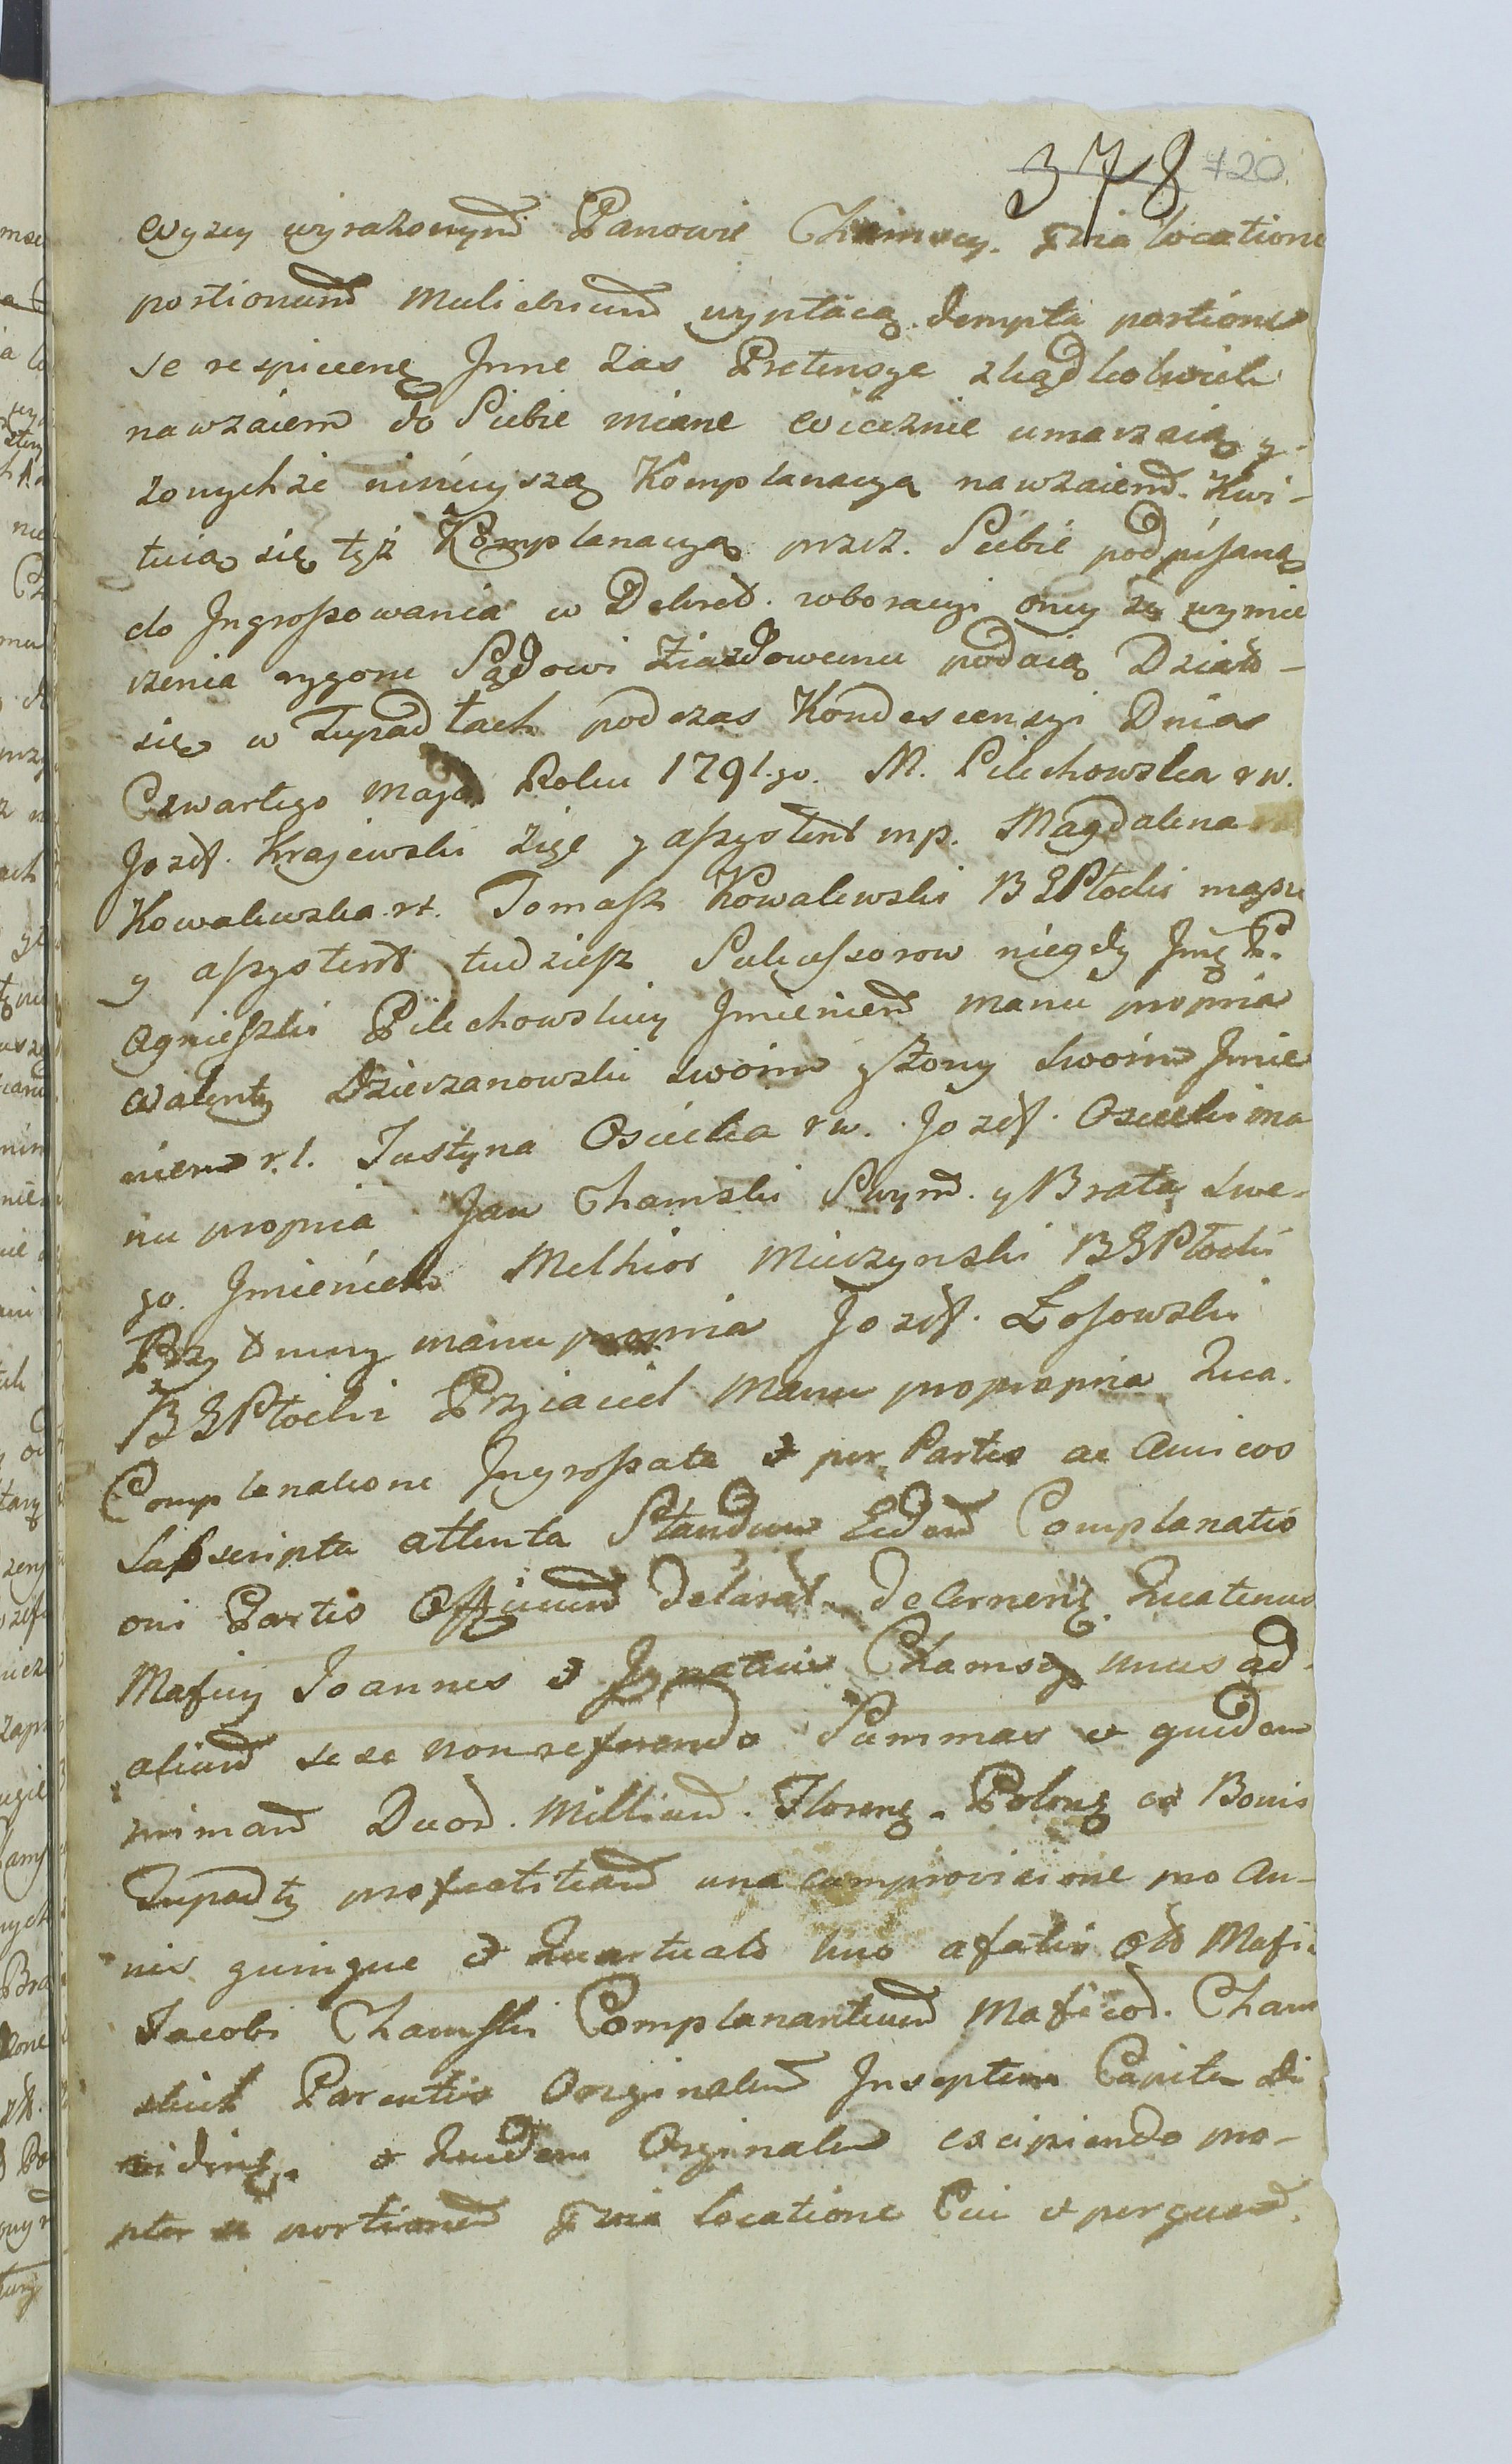 378 120.
wyzey wyrażonym Panowie Chamscy. locatione
portionum muliebrium wypłacą dempta portione
se respiciene Jnne zas Pretensye zkądkolwiek
nawzaiem do Siebie miane wiecznie umarzaią y
zonychże ninieyszą Komplanacyą nawzaiem. Kwi-
tuią się tęż Komplanacyą przez. Siebie podpisaną
do Jngrossowania w Dekret. roboracyi oney
rygoru Sądowi Ziazdowemu podaią Działo-
się w Żupadłach podczas Kondescensyi Dnia
Czwartego maja Roku 1791.go. M. Pilichowska rw.
Jozef. Krajewski Zięć y assystent mp. Magdalena
Kowalewska rt. Tomasz Kowalewski BGPłocki mappr
y assystent tudziesz Sukcessorow niegdy Jmę P.
Agnieszki Pilichowskiey Jmieniem manu propria
Walenty Dzierzanowski swoim y Żony swoim Jmie
niem r.t. Justyna Osiecka rw. Jozef. Osiecki ma
nu propria Jan Chamski Swym. y Brata swe-
go. Jmieniem Melhior Mierzynski BGPłocki
Przy manu propria Jozef. Łosowski
BGPłocki Przyiaciel manu propropria Qua.
Complanatione Jngrossata et per Partes ac Amicos
Subscripta attenta Standum Eidem Complanatio
oni Partis Officium delarat. deCernens Quatenus
Mafici Joannes et Jgnatius Chamscy unus ad
alium se se non referendo Summas et quidem
primam Duor. Millium. Florens. Polons ex Bonis
Żupadły profectitiam una cum provisione pro An-
nis quinque et Quartuale uno a fatis Ołd Mafici
Jacobi Chamski Complanantium Maficor. Cham
skich Parentis Orginalem Jnseptem Capita di
videns. et Eundem Orginalem excipiendo pro-
pter portionem locatione Cui et per quem.